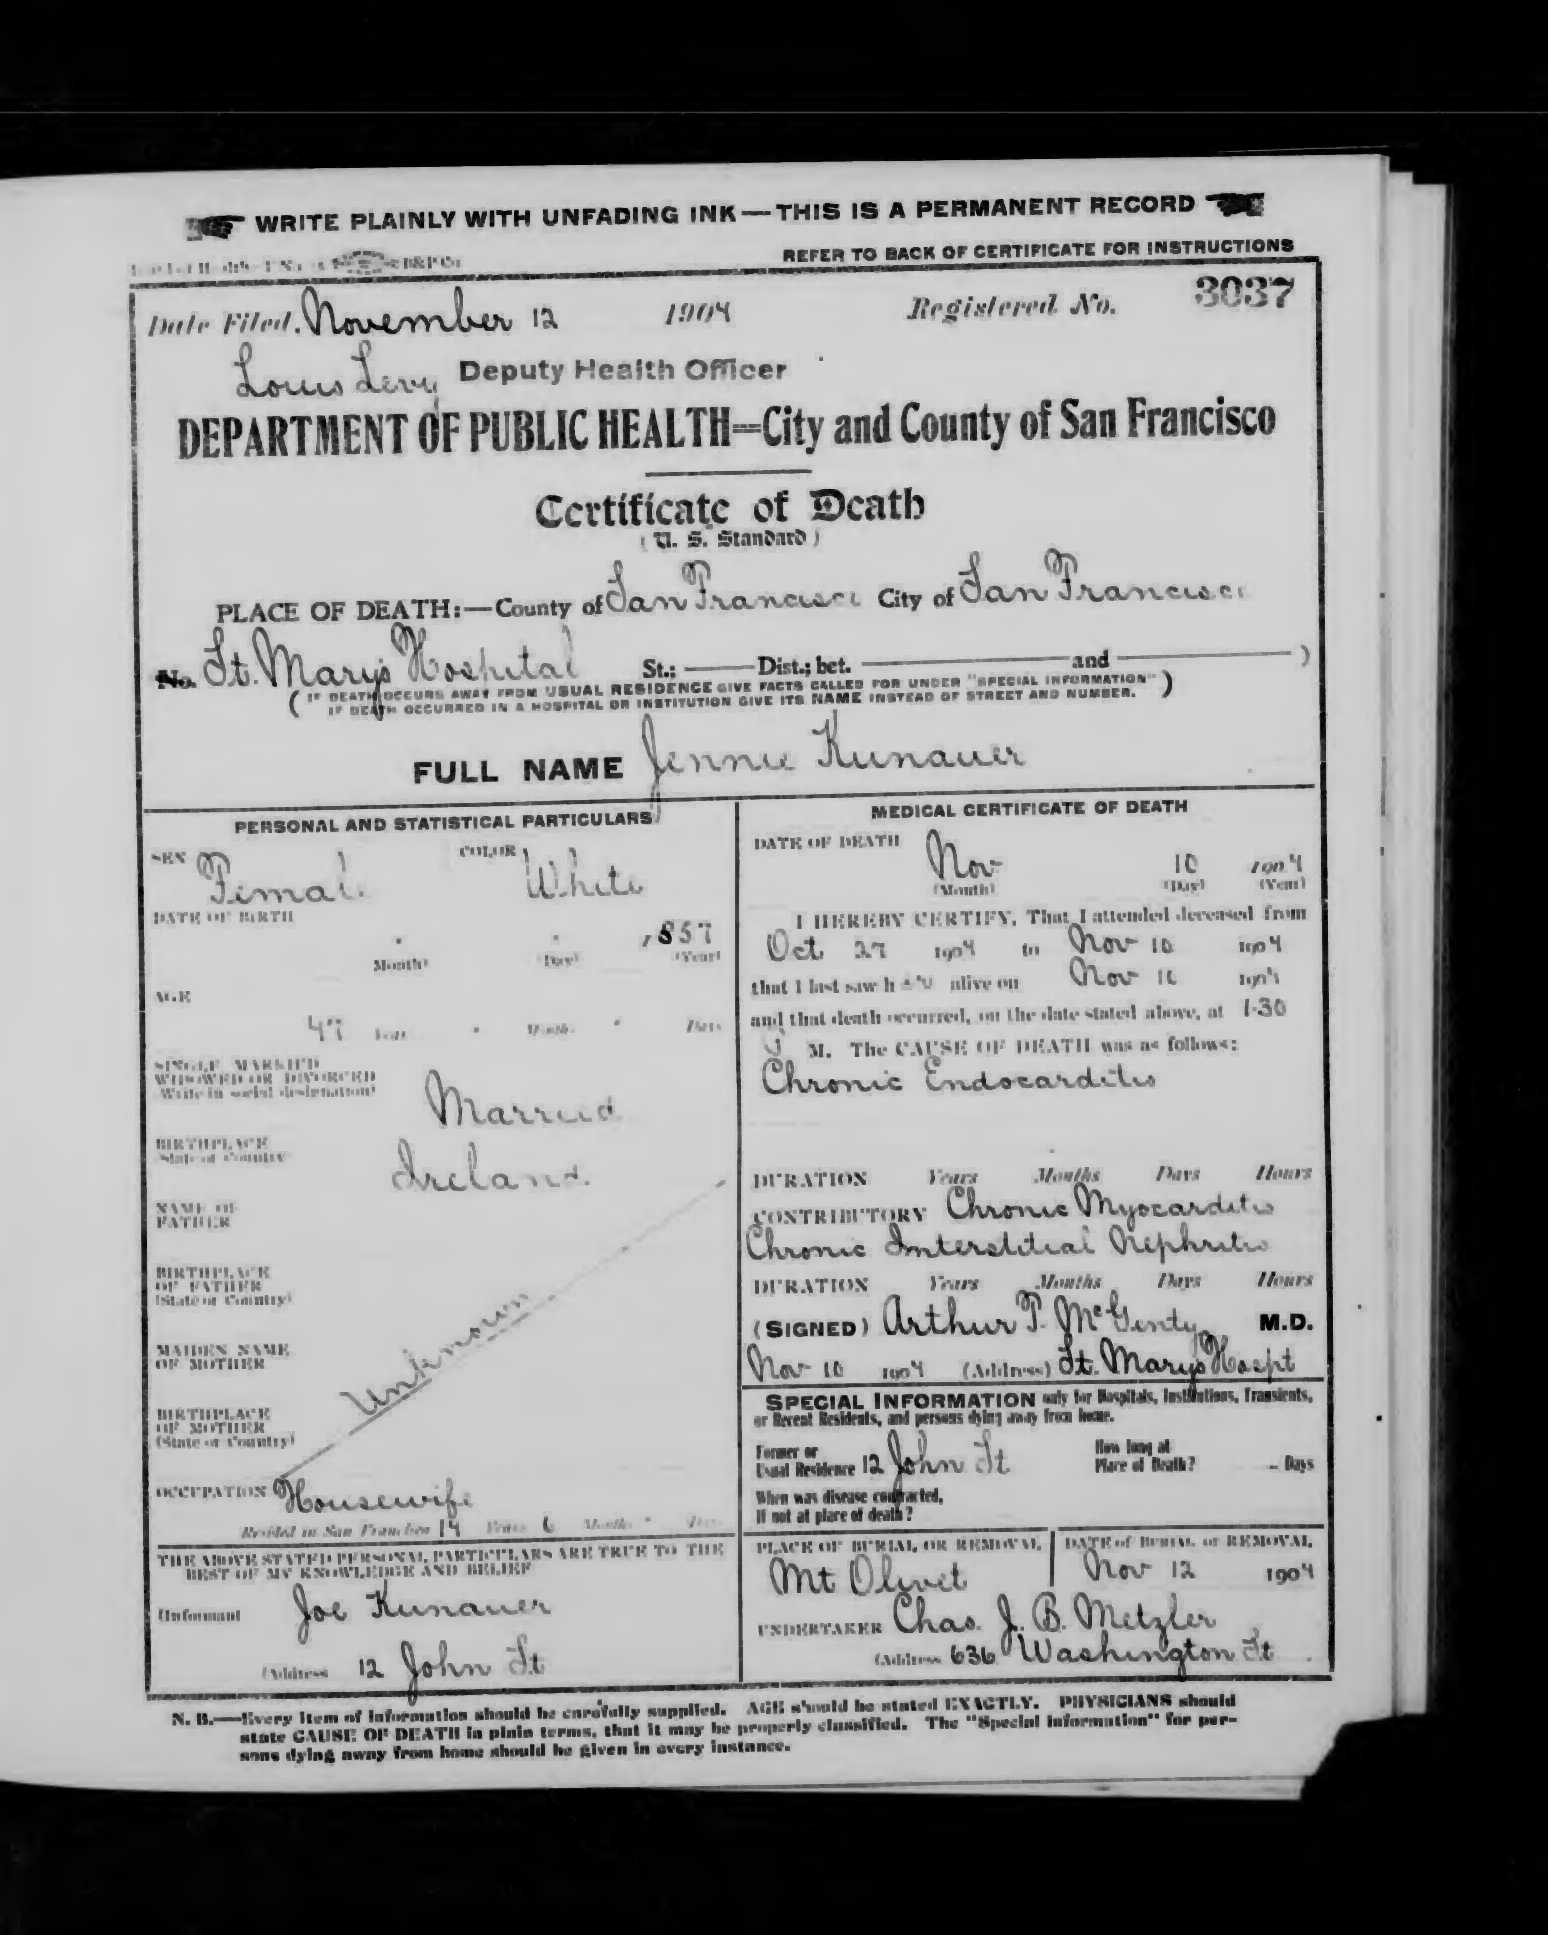 WRITE PLAINLY WITH UNFADING INK—THIS IS A PERMANENT RECORD
REFER TO BACK OF CERTIFICATE FOR INSTRUCTIONS
Date Filed, November 12 1904 Registered No. 3037
Louis Levy Deputy Health Officer
DEPARTMENT OF PUBLIC HEALTH=City and County of San Francisco
Certificate of Death
(U. S. Standard)
PLACE OF DEATH:—County of San Francisco City of San Francisco
No. St. Mary's Hospital St.; Dist.; bet. and )
( IF DEATH OCCURS AWAY FROM USUAL RESIDENCE GIVE FACTS CALLED FOR UNDER "SPECIAL INFORMATION" )
IF DEATH OCCURRED IN A HOSPITAL OR INSTITUTION GIVE ITS NAME INSTEAD OF STREET AND NUMBER.
FULL NAME Jennie Kunauer
PERSONAL AND STATISTICAL PARTICULARS
SEX Female COLOR White
DATE OF BIRTH
1857
(Month) (Day) (Year)
AGE
47 Years Months Days
SINGLE MARRIED
WIDOWED OR DIVORCED
(Write in social designation)
Married
BIRTHPLACE
(State or Country)
Ireland
NAME OF
FATHER
BIRTHPLACE
OF FATHER
(State or Country)
Unknown
MAIDEN NAME
OF MOTHER
BIRTHPLACE
OF MOTHER
(State or Country)
OCCUPATION Housewife
Resided in San Francisco 14 Years 6 Months Days
THE ABOVE STATED PERSONAL PARTICULARS ARE TRUE TO THE
BEST OF MY KNOWLEDGE AND BELIEF
(Informant Joe Kunauer
(Address 12 John St
MEDICAL CERTIFICATE OF DEATH
DATE OF DEATH
Nov 10 1904
(Month) (Day) (Year)
I HEREBY CERTIFY, That I attended deceased from
Oct 27 1904 to Nov 10 1904
that I last saw her alive on Nov 10 1904
and that death occurred, on the date stated above, at 1-30
P M. The CAUSE OF DEATH was as follows:
Chronic Endocarditis
DURATION Years Months Days Hours
CONTRIBUTORY Chronic Myocarditis
Chronic Interstitial Nephritis
DURATION Years Months Days Hours
(SIGNED) Arthur P. McGinty M.D.
Nov 10 1904 (Address) St. Mary's Hospt
SPECIAL INFORMATION only for Hospitals, Institutions, Transients,
or Recent Residents, and persons dying away from home.
Former or
Usual Residence 12 John St
How long at
Place of Death? - Days
When was disease contracted,
If not at place of death?
PLACE OF BURIAL OR REMOVAL
Mt Olivet
DATE of BURIAL or REMOVAL
Nov 12 1904
UNDERTAKER Chas. J. B. Metzler
(Address 636 Washington St
N. B.—Every item of information should be carefully supplied. AGE should be stated EXACTLY. PHYSICIANS should
state CAUSE OF DEATH in plain terms, that it may be properly classified. The "Special Information" for per-
sons dying away from home should be given in every instance.